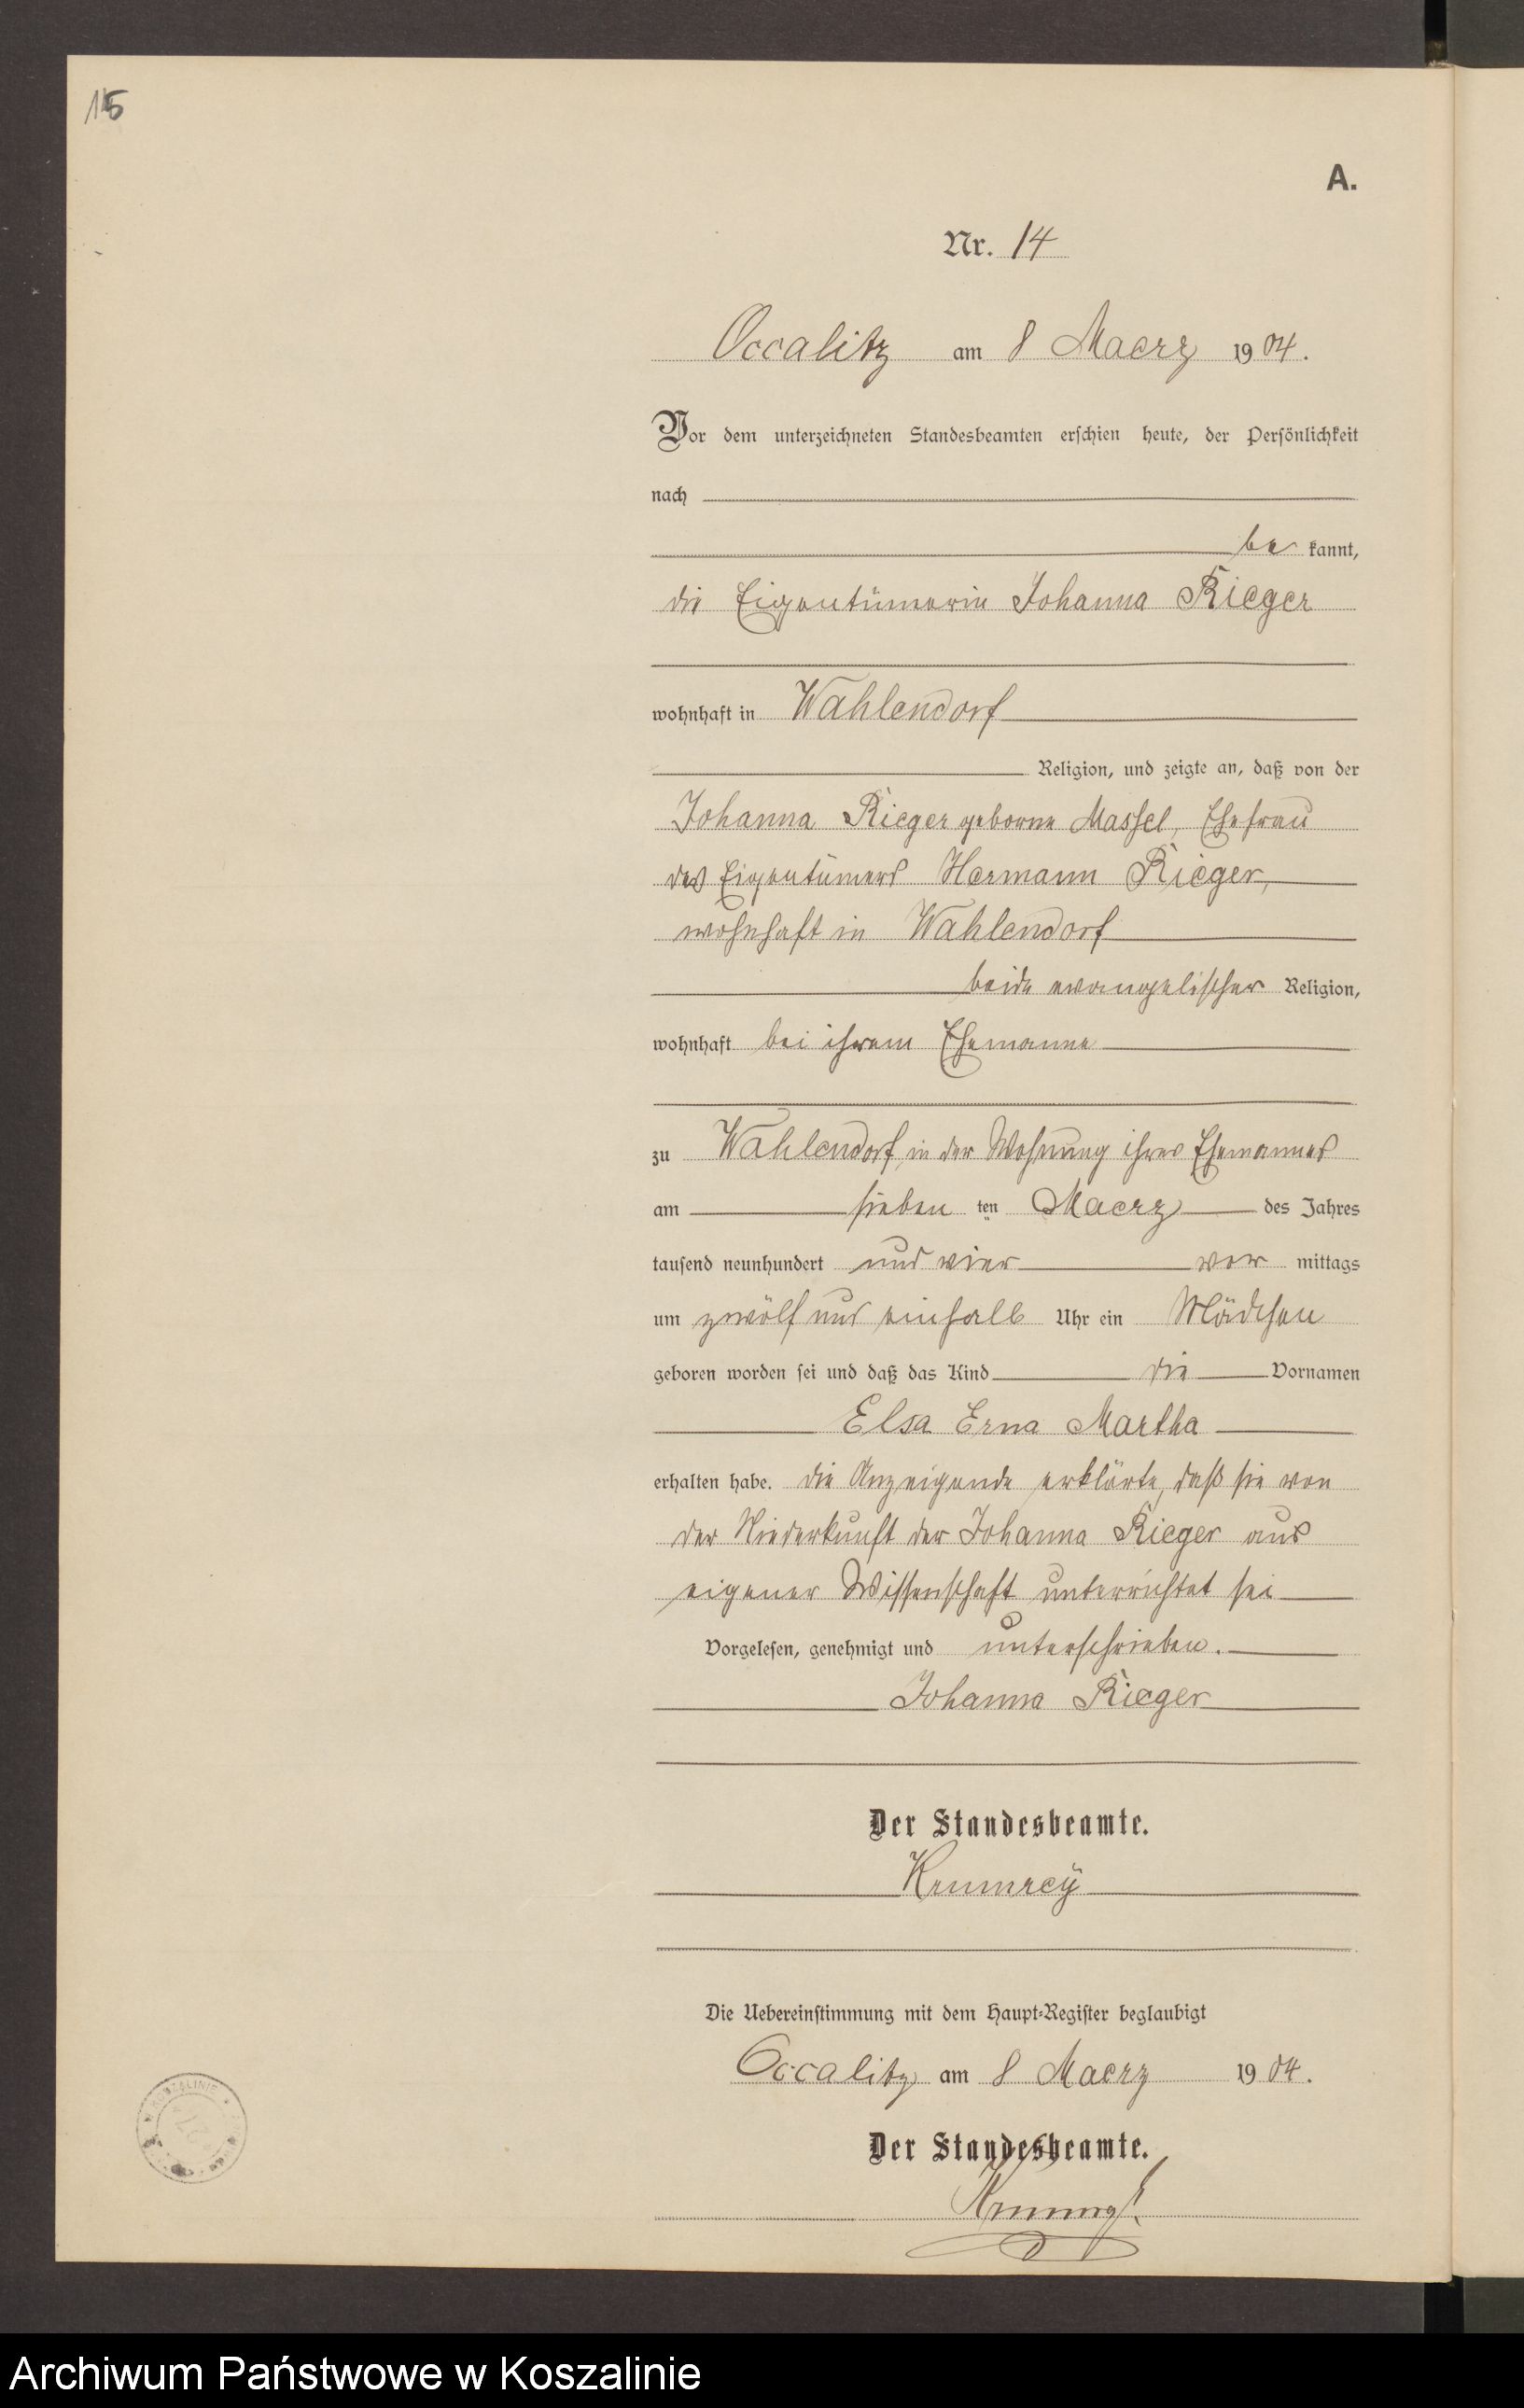 15
A.
Nr. 14
Occalitz am 8 Maerz 1904.
Vor dem unterzeichneten Standesbeamten erschien heute, der Persönlichkeit
nach
be kannt,
die Eigentümerin Johanna Rieger
wohnhaft in Wahlendorf
Religion, und zeigte an, daß von der
Johanna Rieger geborne Massel, Ehefrau
des Eigentümers Hermann Rieger,
wohnhaft in Wahlendorf
beide evangelischer Religion,
wohnhaft bei ihrem Ehemanne
zu Wahlendorf, in der Wohnung ihres Ehemannes
am sieben ten Maerz des Jahres
tausend neunhundert und vier vor mittags
um zwölf und einhalb Uhr ein Mädchen
geboren worden sei und daß das Kind die Vornamen
Elsa Erna Martha
erhalten habe. Die Anzeigende erklärte, daß sie von
der Niederkunft der Johanna Rieger aus
eigener Wissenschaft unterrichtet sei
Vorgelesen, genehmigt und unterschrieben.
Johanna Rieger
Der Standesbeamte.
Krumrey
Die Uebereinstimmung mit dem Haupt-Register beglaubigt
Occalitz am 8 Maerz 1904.
Der Standesbeamte.
KOSZALINIE
Archiwum Państwowe w Koszalinie